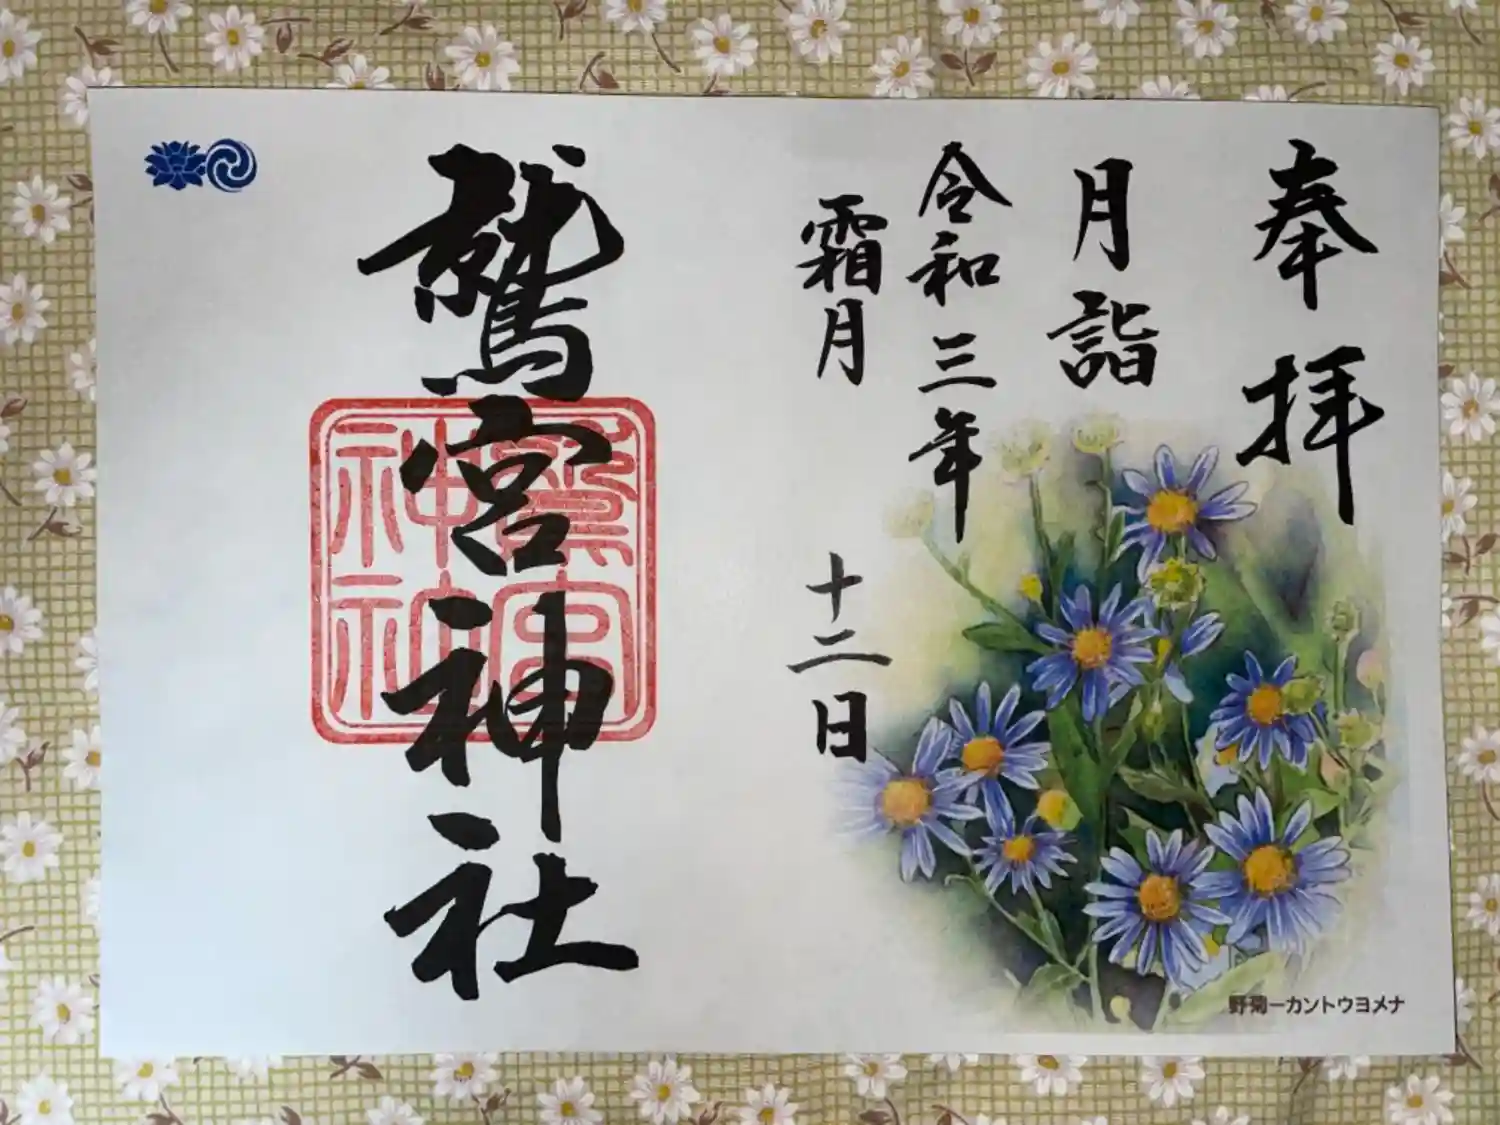 奉拝
月詣
令和三年
霜月 十二日
鷲宮神社
鷲宮
神社
野菊ーカントウヨメナ